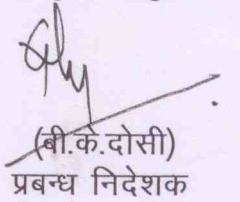 (बी.के.दोसी)
प्रबन्ध निदेशक